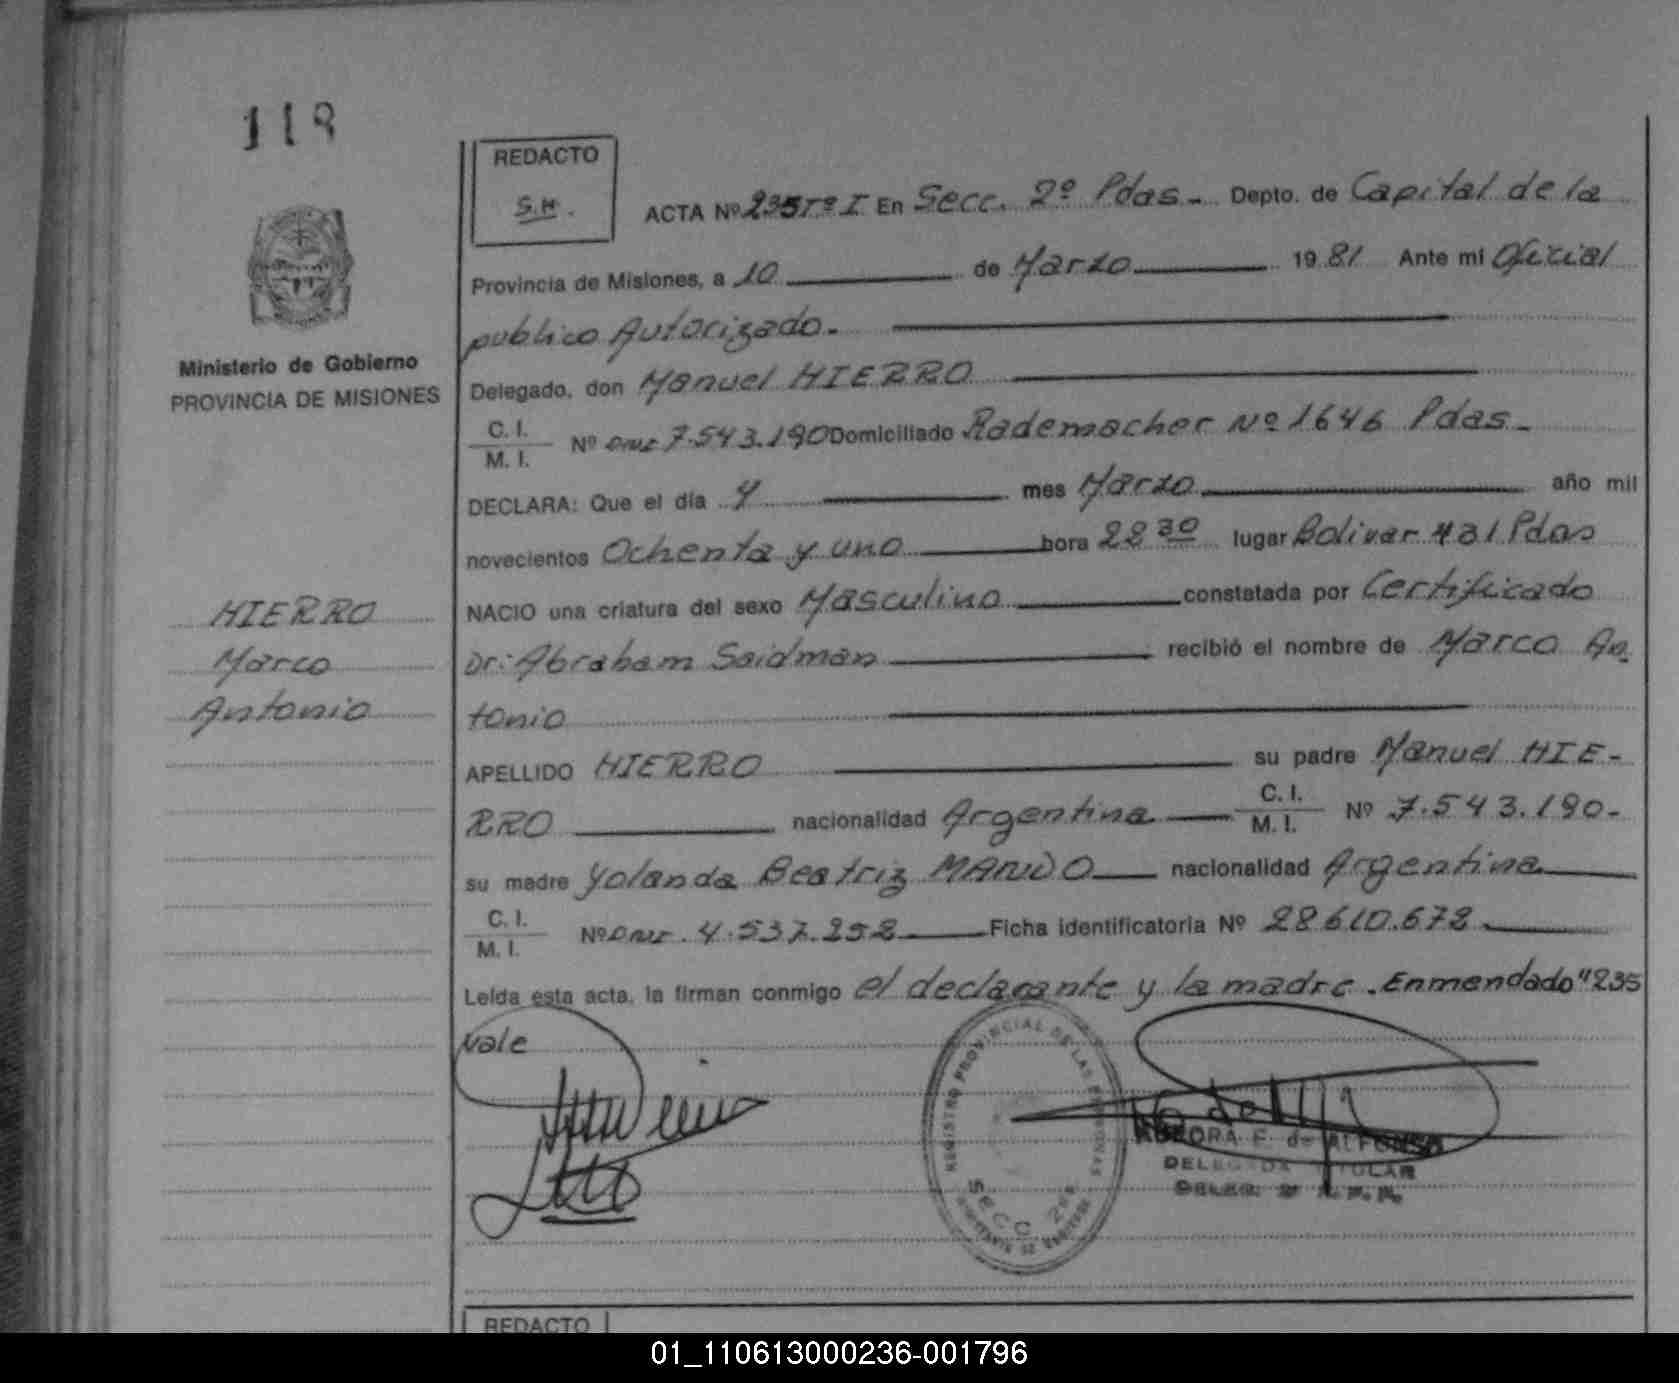 118
REDACTO
S.H.
ACTA Nº 235 Tº I En Secc. 2º Pdas.- Depto. de Capital de la
Provincia de Misiones, a 10 de Marzo 1981 Ante mi Oficial
publico Autorizado.-
Ministerio de Gobierno
PROVINCIA DE MISIONES
Delegado, don Manuel HIERRO
C. I.
M. I. Nº DNI 7.543.190 Domiciliado Rademacher Nº 1646 Pdas.-
DECLARA: Que el día 4 mes Marzo año mil
novecientos Ochenta y uno hora 22 30 lugar Bolivar 431 Pdas
NACIO una criatura del sexo Masculino constatada por Certificado
Dr: Abraham Saidman recibió el nombre de Marco An
tonio
HIERRO
Marco
Antonio
APELLIDO HIERRO su padre Manuel HIE-
RRO nacionalidad Argentina C. I.
M. I. Nº 7.543.190-
su madre Yolanda Beatriz nacionalidad Argentina
C. I.
M. I. Nº DNI. 4.537.252 Ficha identificatoria Nº 28.610.672
Leída esta acta, la firman conmigo el declarante y la madre. Enmendado "235
vale
REGISTRO PROVINCIAL DE LAS PERSONAS
SECC 2da
AURORA F. de ALFONSO
DELEGADA TITULAR
REDACTO
01_110613000236-001796